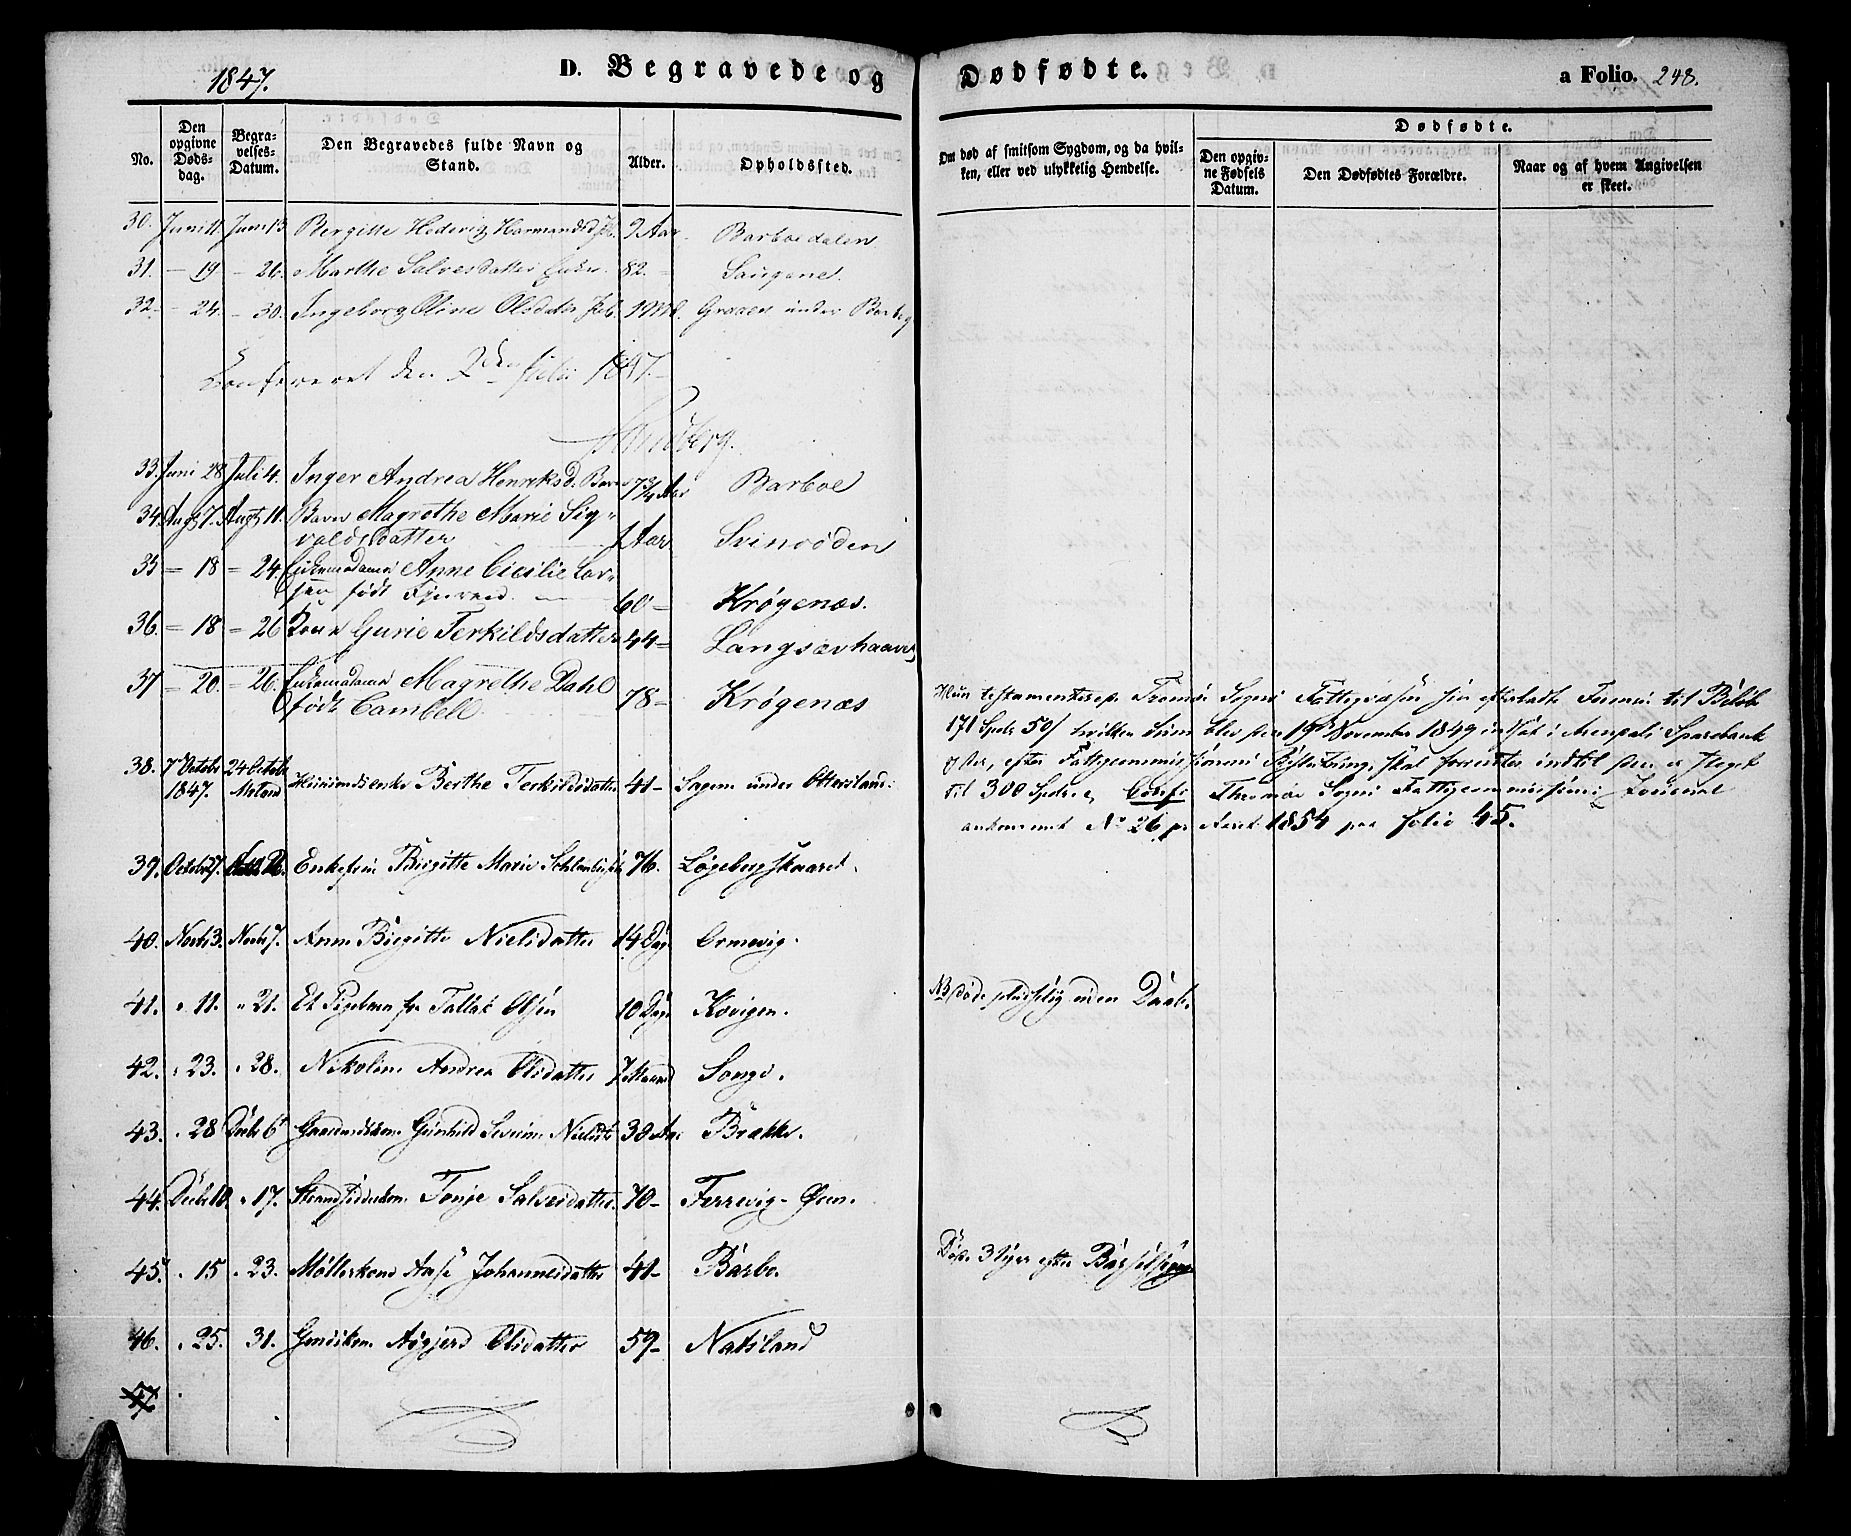 1847.
D. Begravede og Dødfødte.
a Folio. 248.
No.
Den opgivne Døds-dag.
Begra-velses-Datum.
Den Begravedes fulde Navn og Stand.
Alder.
Opholdssted.
Om død af smitsom Sygdom, og da hvil-ken, eller ved ulykkelig Hendelse.
Dødfødte.
Den opgiv-ne Fødsels Datum.
Den Dødfødtes Forældre.
Naar og af hvem Angivelsen er skeet.
30. Juni 11. Juni 13 Bergitte Hedevig 9 Aar. Barboedalen
31. — 19 — 26. Marthe Salvesdatter 82. — Saugene.
32. — 24. — 30. Ingeborg Oline Olsdatter 1 Md. Graaen under Barbo
Confereret den 2den Julii 1847.
33. Juni 28. Juli 4. Inger Andrea Henriksd. Barn 7 3/4 Aar Barboe
34. Augt 7. Augt 11. Barn Magrethe Marie Sig-
valdsdatter 1 Aar Svinodden
35 — 18 — 24. Enkemadame Anne Cicilie Lar-
sen født 60 — Krøgenæs.
36. — 18 — 26 Kone Gurie Terkildsdatter 44 — Langsævhaaven
37 — 20. — 26. Enkemadame Magrethe Dahl
født Cambell. 78 — Krøgenæs
Hun testamenterede Tromø Sogns Fattigvæsen sin efterladte Formue til Beløb
171 Spdr 50 s hvilken Sum blev den 19d November 1849 indsat i Arendals Sparebank
og der, efter Fattigcommissionens Beslutning, skal forrentes indtil den er steget
til 300 Spdr. Confr. Tromøe Sogns Fattigcommissions Journal
ankommet No 26 pr Aaret 1854 paa folio 45.
38. 7 Octobr 1847. 24 Octobr Berthe Terkildsdatter 41 — Sagene under Ottersland.
39. October 7. Enkefrue Birgitte Marie 76. Løgebergskaaret.
40. Novbr 3. Novbr 7. Anne Birgitte Nielsdatter 14 Dage Ormevig.
41. " 11. " 21. Et Pigebarn for Tallak Olsen 10 Dage Kovigen.
NB døde pludselig uden Daab.
42. " 23. " 28. Nikoline Andrea Olsdatter 7 Maaned Songe.
43. " 28 Decbr 6t Gaardmdskone Gunhild Severine Nielsdtr 38 Aar Brække.
44. Decbr 10. " 17. Strandsidderkone Tonje Salvesdatter. 70 — Ferrevig-Øen.
45. " 15 " 23. Møllerkone Aase Johannesdatter 41 — Barbo.
Døde 3 Uger efter Barselseng
46. " 25. 31. Asgjerd Olsdatter 59 — Natvland
47